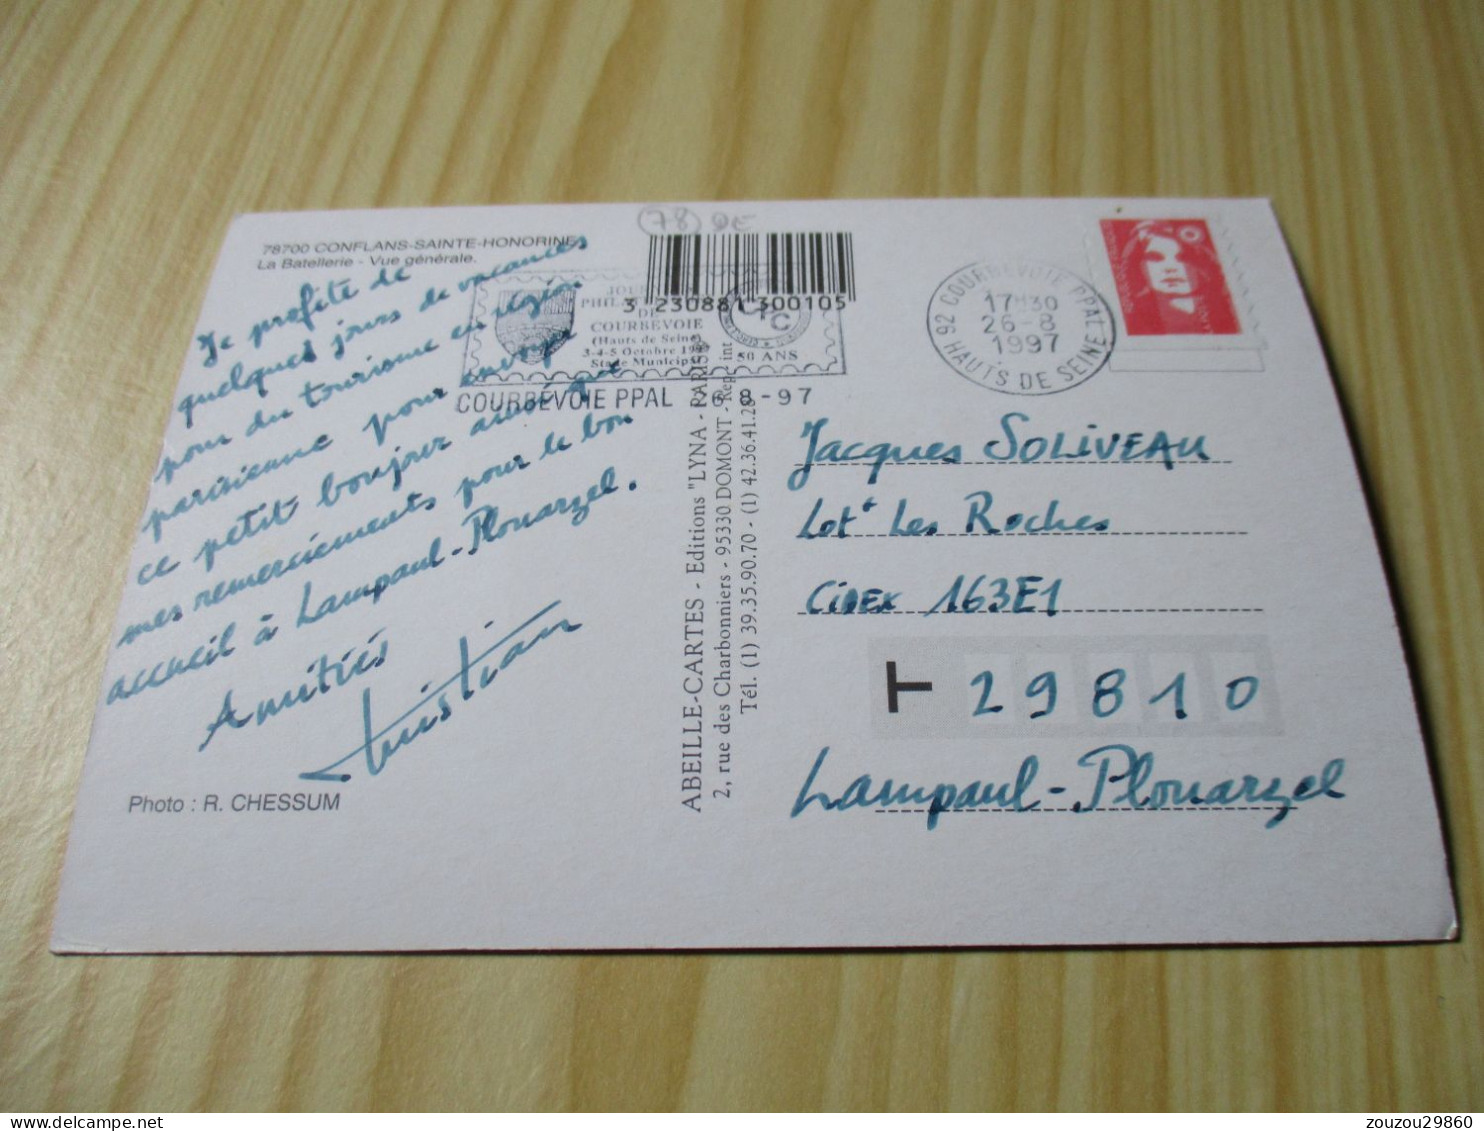 78 DE
78700 CONFLANS-SAINTE-HONORINE
La Batellerie - Vue générale.
Je profite de
quelques jours de vacances
pour du tourisme en région
parisienne pour
ce petit bonjour ainsi que
mes remerciements pour le bon
accueil à Lampaul-Plouarzel.
Amitiés
Christian
Photo : R. CHESSUM
3 230881 300105
PHILAT
DE
COURBEVOIE
(Hauts de Seine)
3-4-5 Octobre
50 ANS
COURBEVOIE PPAL 26-8-97
ABEILLE-CARTES - Editions "LYNA - PARIS"
2, rue des Charbonniers - 95330 DOMONT - Rep. int
Tél. (1) 39.35.90.70 - (1) 42.36.41.28
92 COURBEVOIE PPAL
17H30
26-8
1997
HAUTS DE SEINE
Jacques SOLIVEAU
Lot^t Les Roches
CIDEX 163E1
T 29810
Lampaul-Plouarzel
zouzou29860